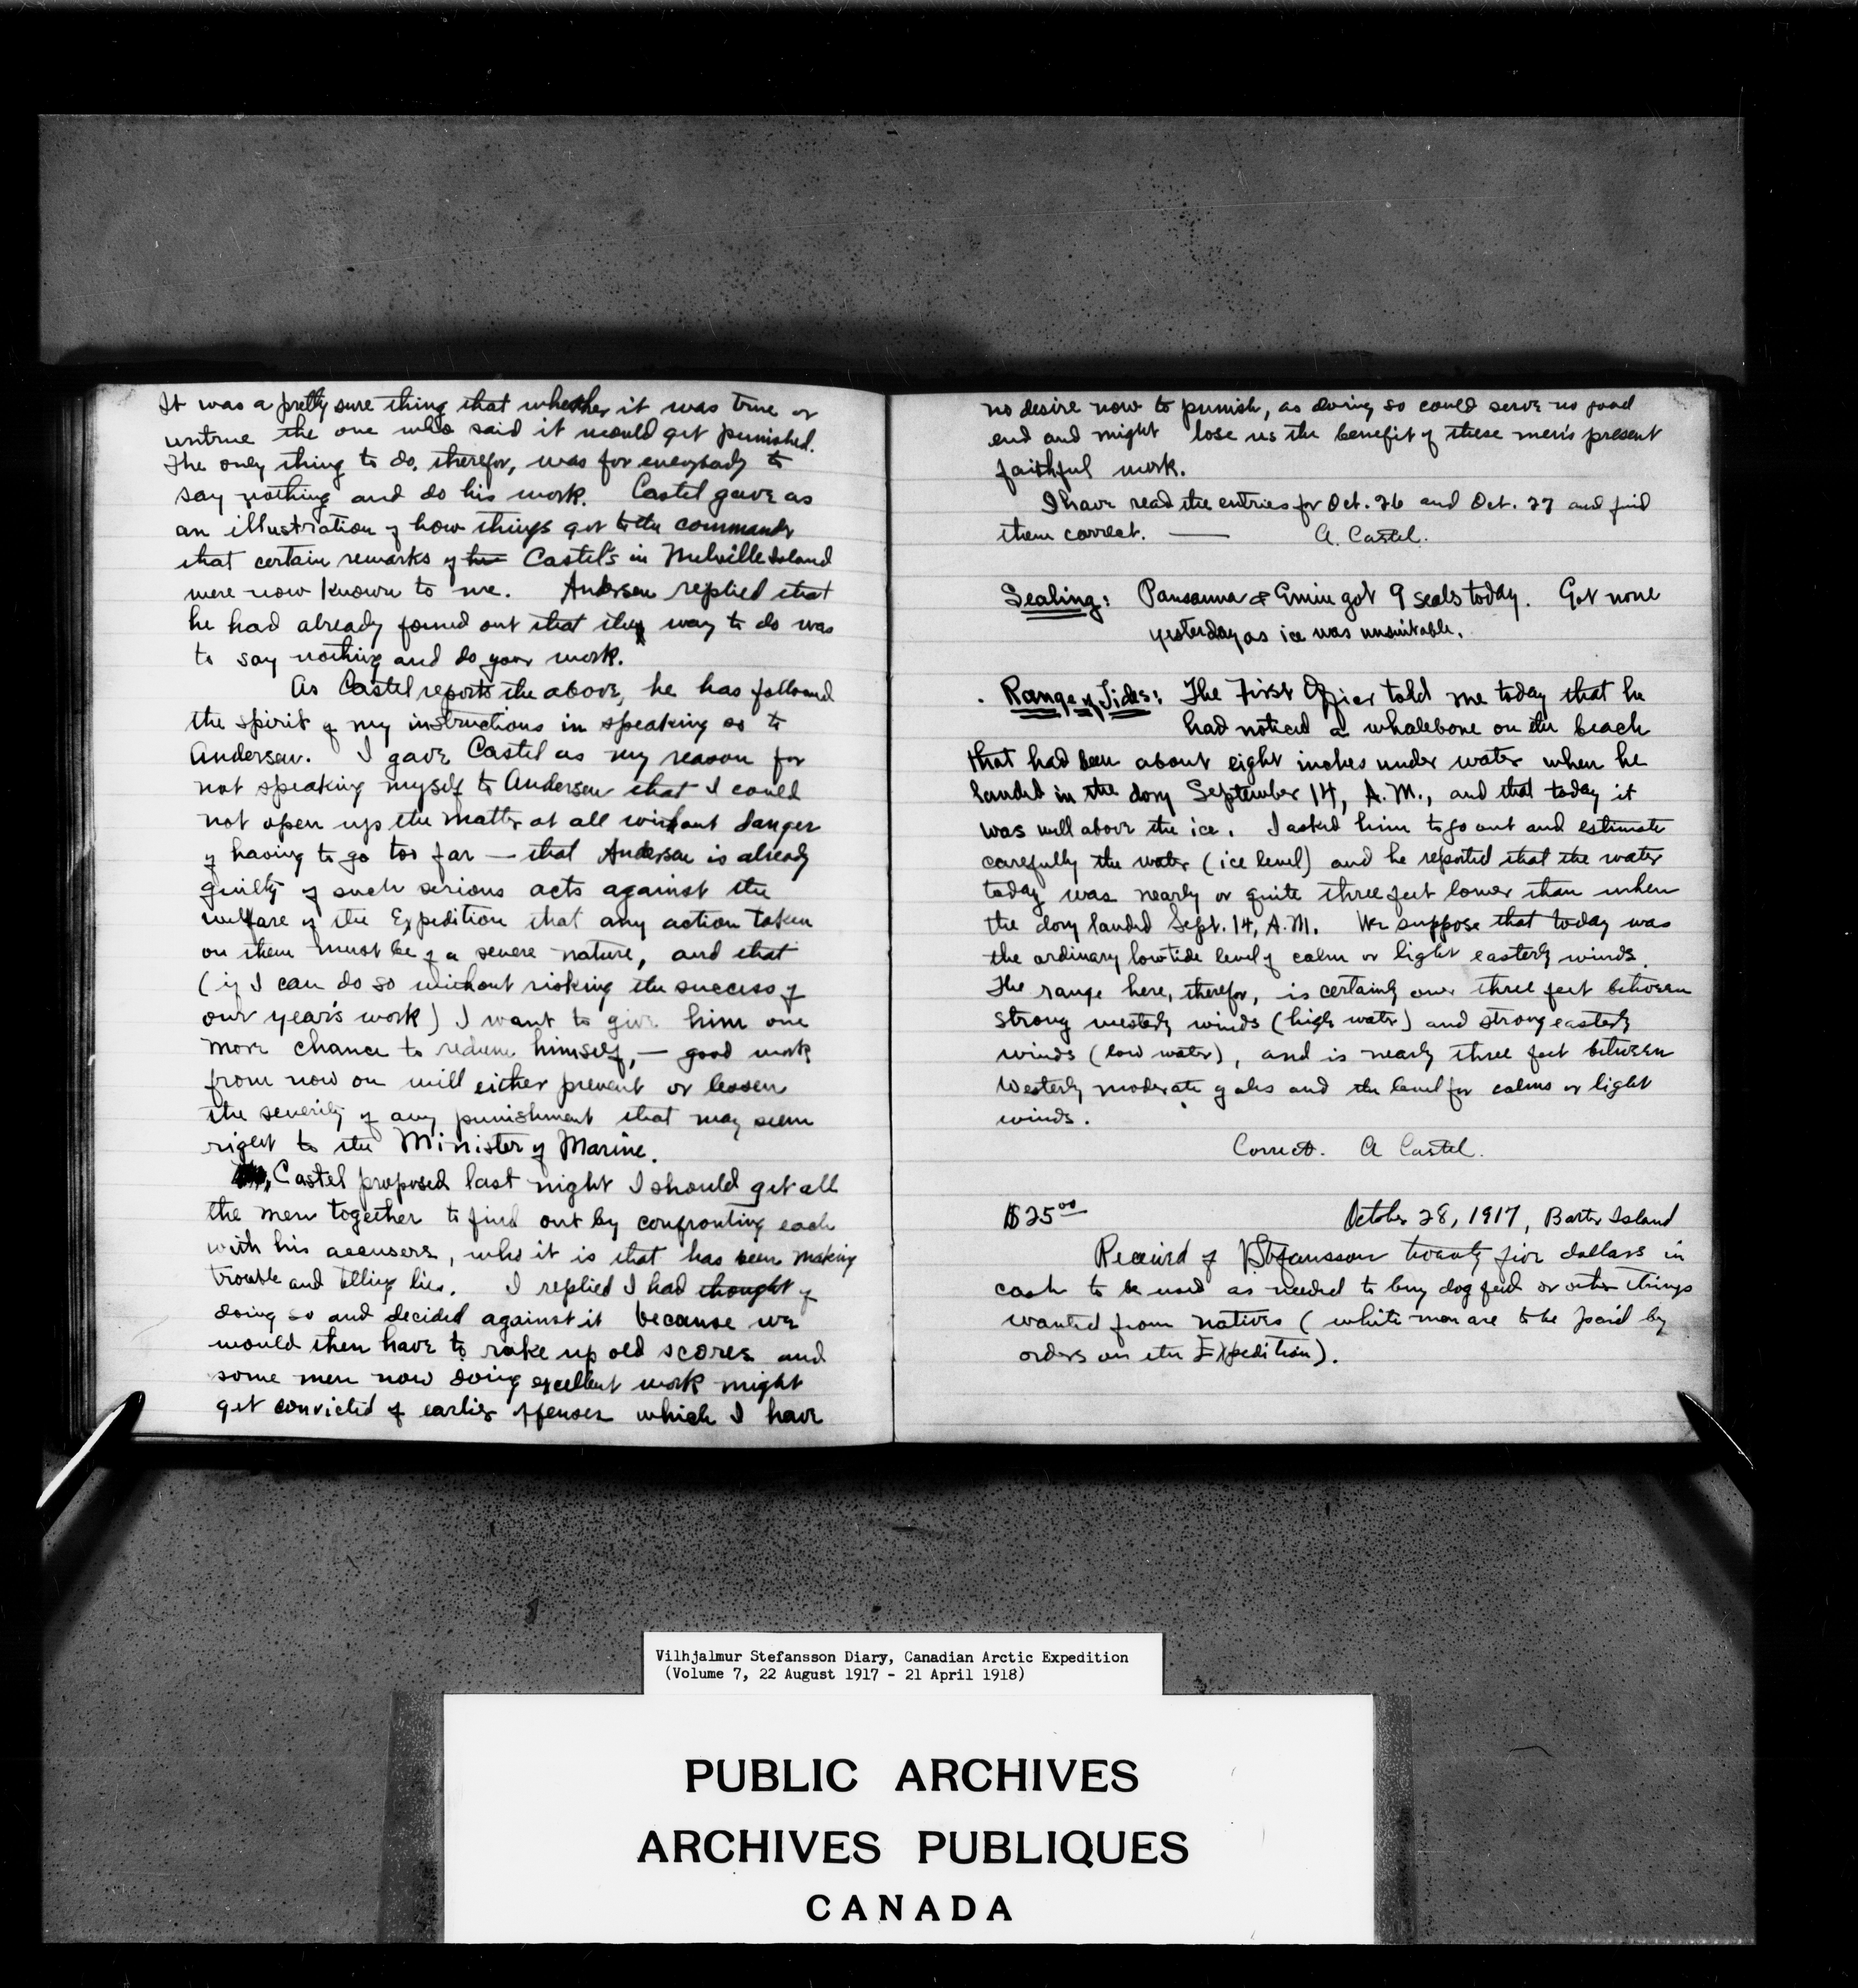 It was a pretty sure thing that whether it was true or
untrue the one who said it would get punished.
The only thing to do, therefor, was for everybody to
say nothing and do his work. Castel gave as
an illustration of how things got to the commander
that certain remarks of his Castel's in Melville Island
were now known to me. Andersen replied that
he had already found out that the way to do was
to say nothing and do your work.
As Castel reports the above, he has followed
the spirit of my instructions in speaking so to
Andersen. I gave Castel as my reason for
not speaking myself to Andersen that I could
not open up the matter at all without danger
of having to go too far — that Andersen is already
guilty of such serious acts against the
welfare of the Expedition that any action taken
on them must be of a severe nature, and that
(if I can do so without risking the success of
our year's work) I want to give him one
more chance to redeem himself, — good work
from now on will either prevent or lessen
the severity of any punishment that may seem
right to the Minister of Marine.
Castel proposed last night I should get all
the men together to find out by confronting each
with his accusers, who it is that has been making
trouble and telling lies. I replied I had thought of
doing so and decided against it because we
would then have to rake up old scores and
some men now doing excellent work might
get convicted of earlier offenses which I have
no desire now to punish, as doing so could serve no good
end and might lose us the benefit of these men's present
faithful work.
I have read the entries for Oct. 26 and Oct. 27 and find
them correct. — A. Castel.
Sealing: Pausanna & Emiu got 9 seals today. Got none
yesterday as ice was unsuitable.
Range of Tides: The First Officer told me today that he
had noticed a whalebone on the beach
that had been about eight inches under water when he
landed in the dory September 14, A.M., and that today it
was well above the ice. I asked him to go out and estimate
carefully the water (ice level) and he reported that the water
today was nearly or quite three feet lower than when
the dory landed Sept. 14, A.M. We suppose that today was
the ordinary low tide level of calm or light easterly winds.
The range here, therefor, is certainly over three feet between
strong westerly winds (high water) and strong easterly
winds (low water), and is nearly three feet between
Westerly moderate gales and the level for calms or light
winds.
Correct. A Castel.
$25.00 October 28, 1917, Barter Island
Received of V Stefansson twenty five dollars in
cash to be used as needed to buy dog feed or other things
wanted from natives (white men are to be paid by
orders on the Expedition).
Vilhjalmur Stefansson Diary, Canadian Arctic Expedition
(Volume 7, 22 August 1917 - 21 April 1918)
PUBLIC ARCHIVES
ARCHIVES PUBLIQUES
CANADA